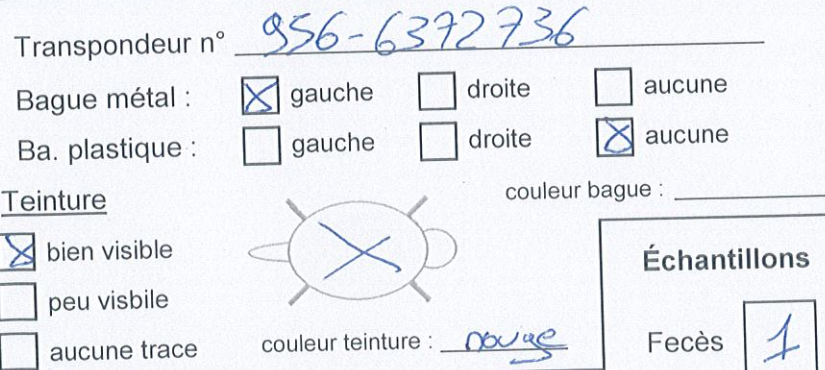 Transpondeur n° 956-6372736
Bague métal : gauche droite aucune
Ba. plastique : gauche droite aucune
Teinture couleur bague :
bien visible
peu visbile
aucune trace
couleur teinture : rouge
Échantillons
Fecès 1